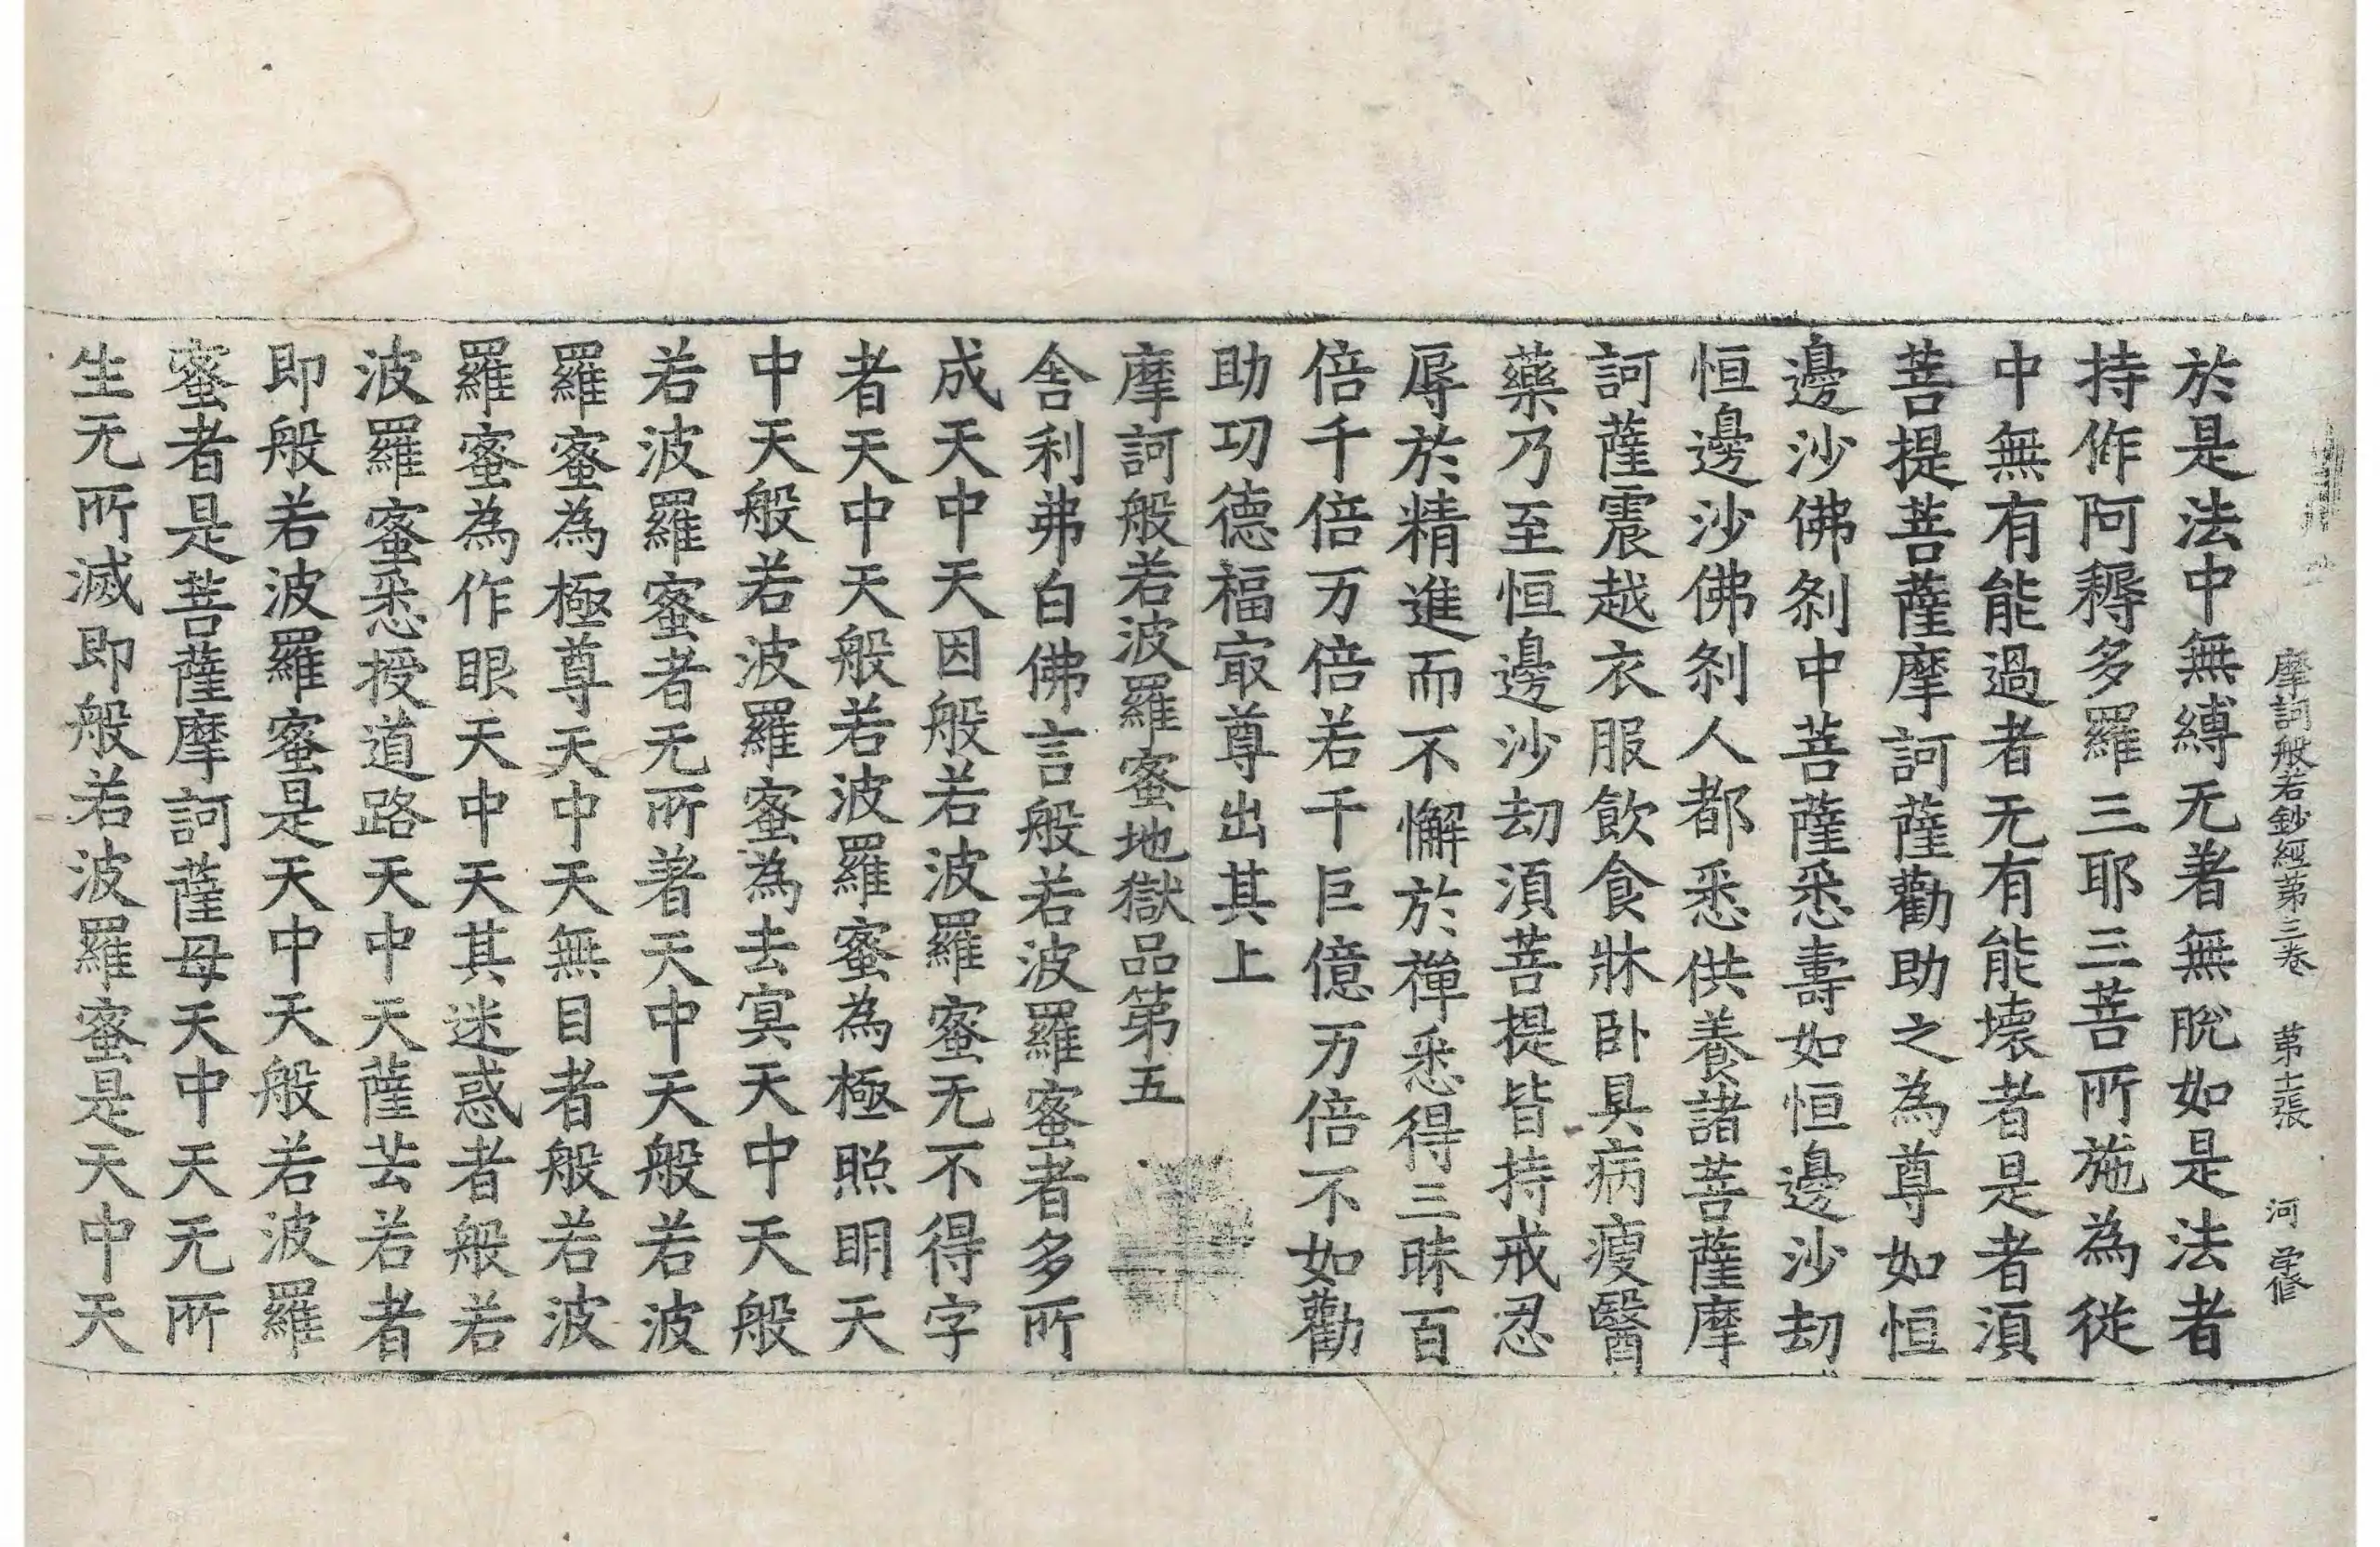 摩訶般若鈔經第三卷 第十張 河 孚修
於是法中無縛无著無脫如是法者
持作阿耨多羅三耶三菩所施為從
中無有能過者无有能壞者是者湏
菩提菩薩摩訶薩勸助之為尊如恒
邊沙佛剎中菩薩悉壽如恒邊沙劫
恒邊沙佛剎人都悉供養諸菩薩摩
訶薩震越衣服飲食牀卧具病瘦醫
藥乃至恒邊沙劫湏菩提皆持戒忍
辱於精進而不懈於禪悉得三昧百
倍千倍万倍若干巨億万倍不如勸
助功德福㝡尊出其上
摩訶般若波羅蜜地獄品第五
舍利弗白佛言般若波羅蜜者多所
成天中天因般若波羅蜜无不得字
者天中天般若波羅蜜為極照明天
中天般若波羅蜜為去冥天中天般
若波羅蜜者无所著天中天般若波
羅蜜為極尊天中天無目者般若波
羅蜜為作眼天中天其迷惑者般若
波羅蜜悉授道路天中天薩芸若者
即般若波羅蜜是天中天般若波羅
蜜者是菩薩摩訶薩母天中天无所
生无所滅即般若波羅蜜是天中天